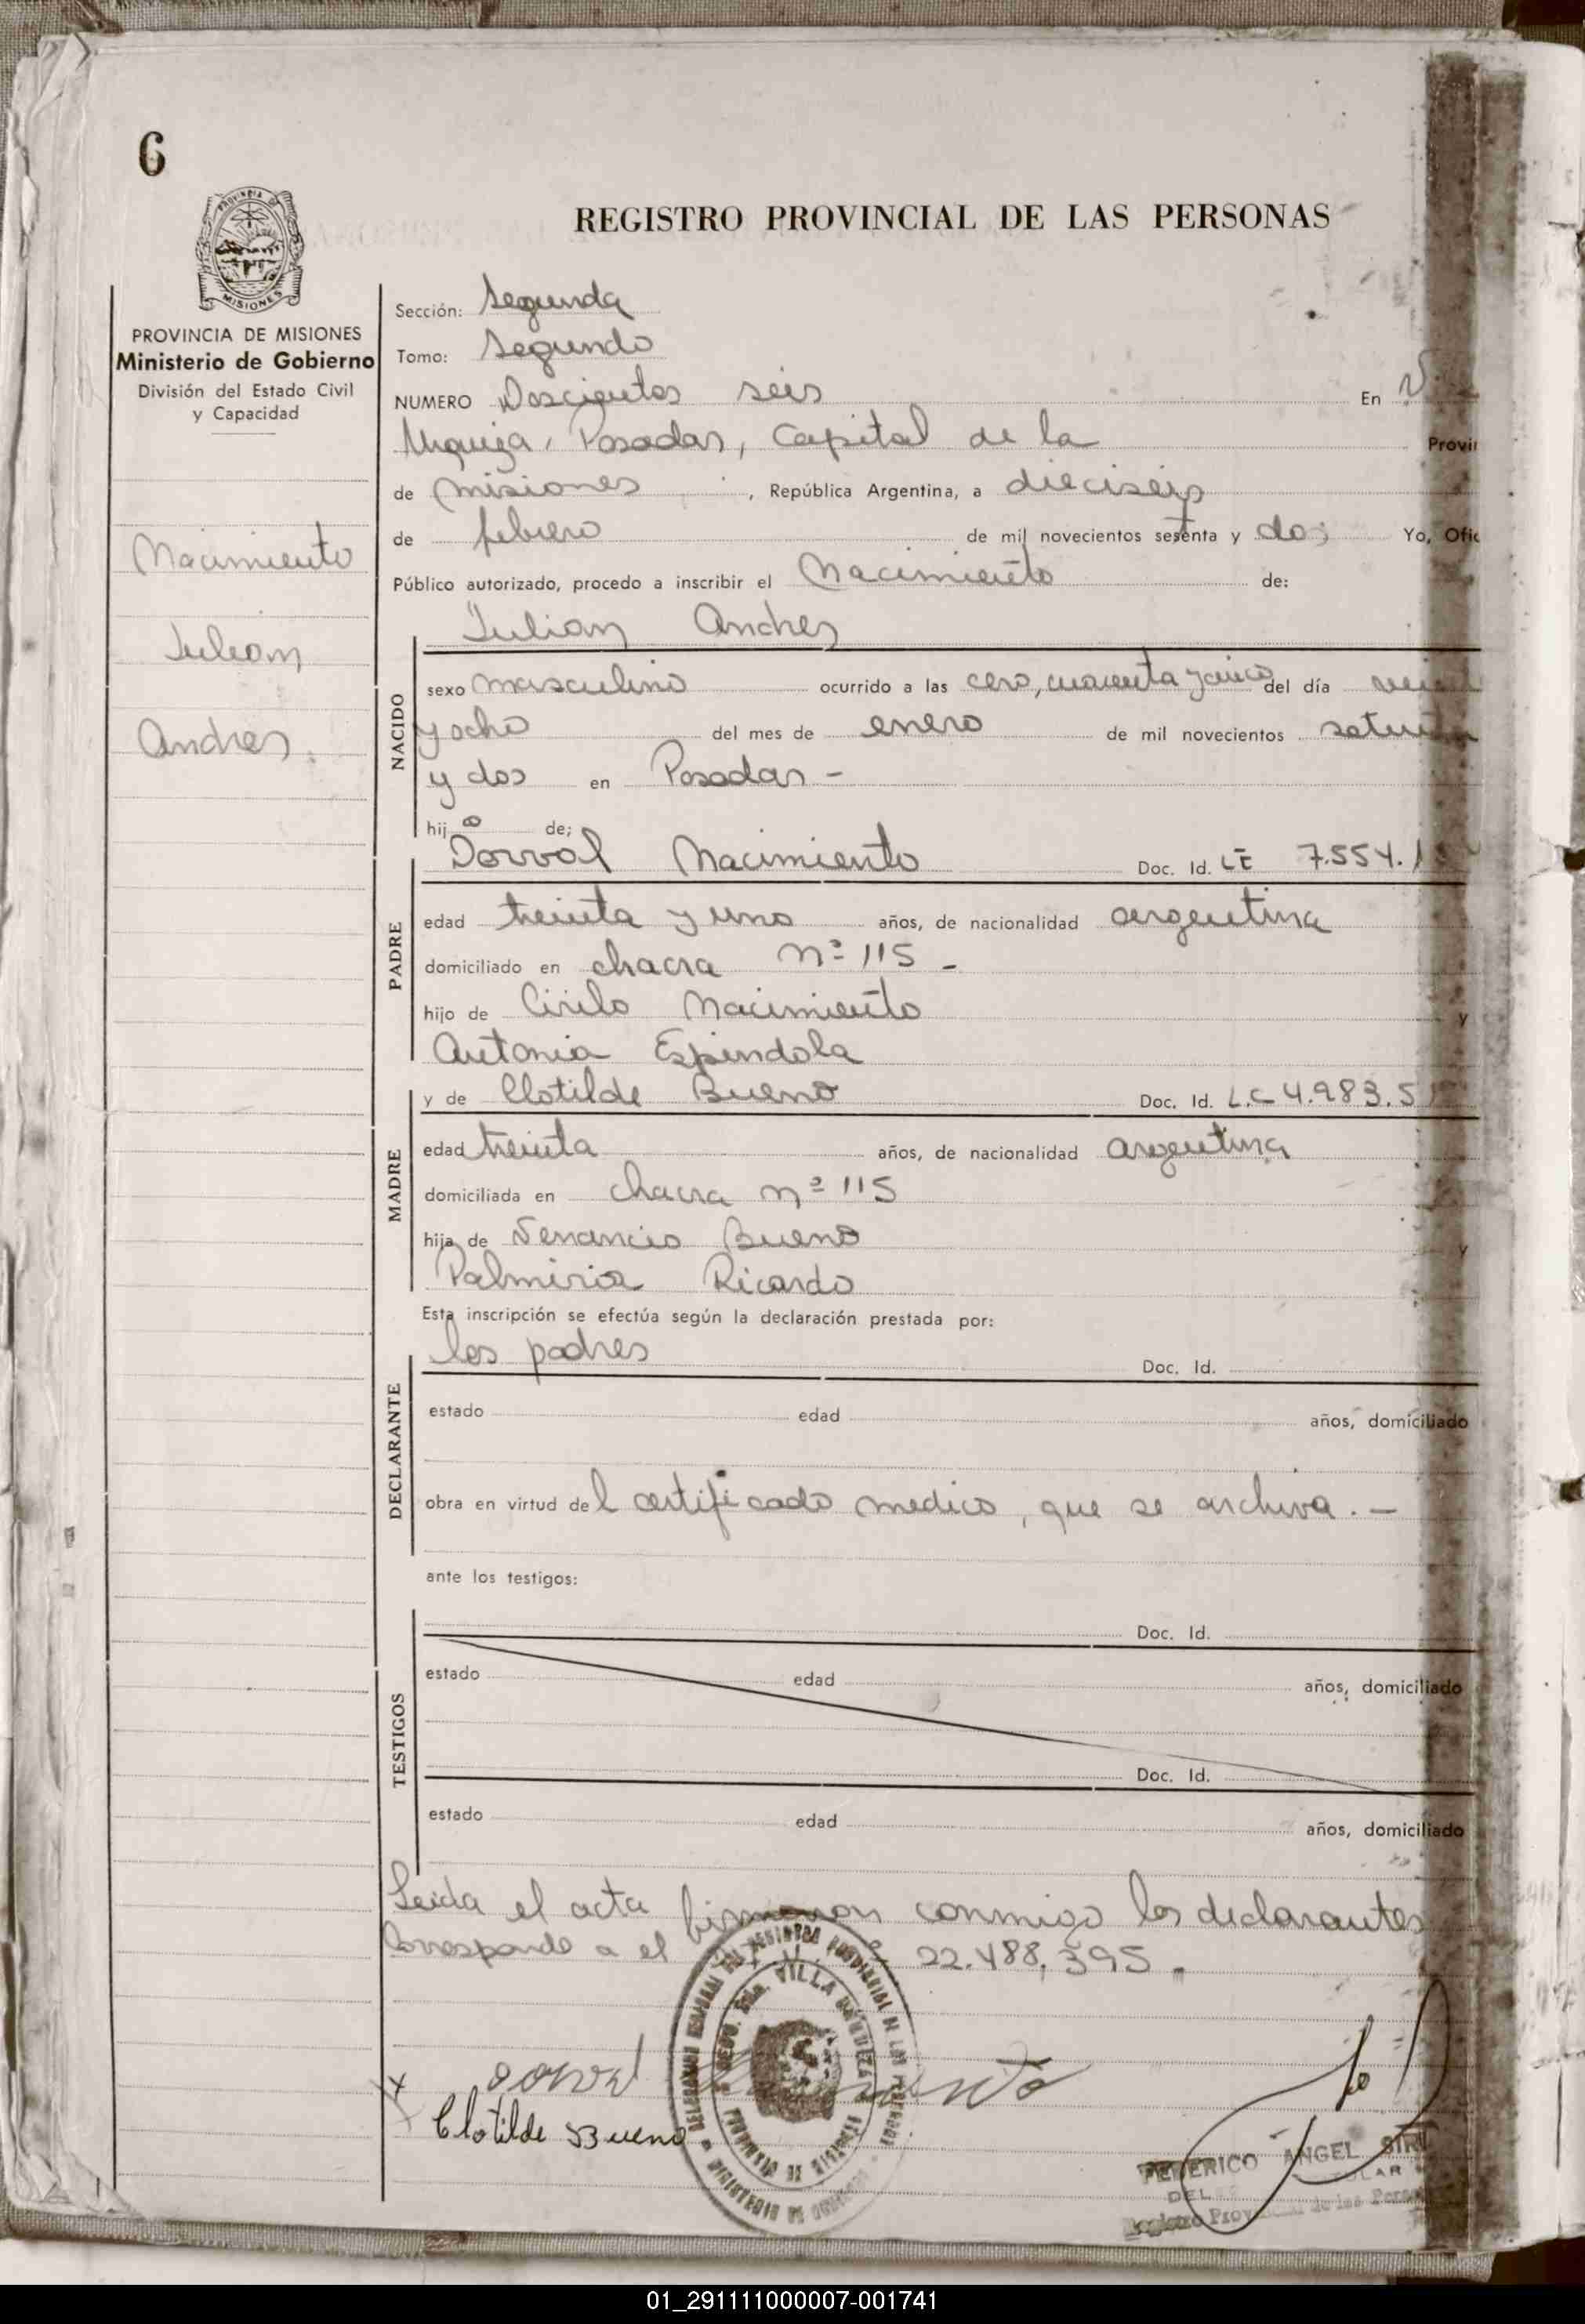 6
PROVINCIA DE
MISIONES
REGISTRO PROVINCIAL DE LAS PERSONAS
PROVINCIA DE MISIONES
Ministerio de Gobierno
División del Estado Civil
y Capacidad
Nacimiento
Julian
Andres.
Sección: Segunda
Tomo: Segundo
NUMERO Doscientos seis En V.
Urquiza, Posadas, Capital de la Provin
de Misiones, República Argentina, a dieciseis
de febrero de mil novecientos sesenta y dos Yo, Ofic
Público autorizado, procedo a inscribir el Nacimiento de:
Julian Andres
NACIDO
sexo masculino ocurrido a las cero, cuarenta y cinco del día vein
y ocho del mes de enero de mil novecientos setenta
y dos en Posadas -
hijo de;
Dorval Nacimiento Doc. Id. LE 7.554.1
PADRE
edad treinta y uno años, de nacionalidad argentina
domiciliado en chacra nº 115 -
hijo de Cirilo Nacimiento y
Antonia Espindola
y de Clotilde Bueno Doc. Id. L.C 4.983.5
MADRE
edad treinta años, de nacionalidad argentina
domiciliada en chacra nº 115
hija de Venancio Bueno y
Palmiria Ricardo
Esta inscripción se efectúa según la declaración prestada por:
los padres Doc. Id.
DECLARANTE
estado edad años, domiciliado
obra en virtud del certificado medico, que se archiva. -
ante los testigos:
Doc. Id.
TESTIGOS
estado edad años, domiciliado
Doc. Id.
estado edad años, domiciliado
Leida el acta firmaron conmigo los declarantes
Corresponde a el 22.488.395.
Dorval
Clotilde Bueno
VILLA URQUIZA
FEDERICO ANGEL
DEL
Registro Provincial de las Perso
01_291111000007-001741